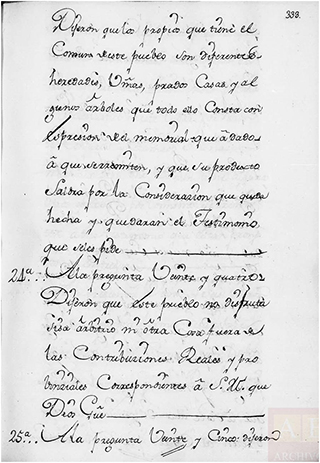 333.
Dijeron que los propios que tiene el
Comun de este pueblo son diferentes
heredades, Viñas, prados Casas, y al
gunos árboles que todo ello Consta con
expresion del memorial que á dado
á que se rremiten, y que su producto
Saldrá por la Consideracion que queda
hecha y quedaran el Testimonio
que se les pide
24ª.. A la pregunta Veinte y quatro
Dijeron que este pueblo no disfruta
sisa arbitrio ni otra Cosa fuera de
las Contribuciones Reales y pro
binziales Correspondientes á S.M. que
Dios Gûe
25ª.. A la pregunta Veinte y Cinco dijeron